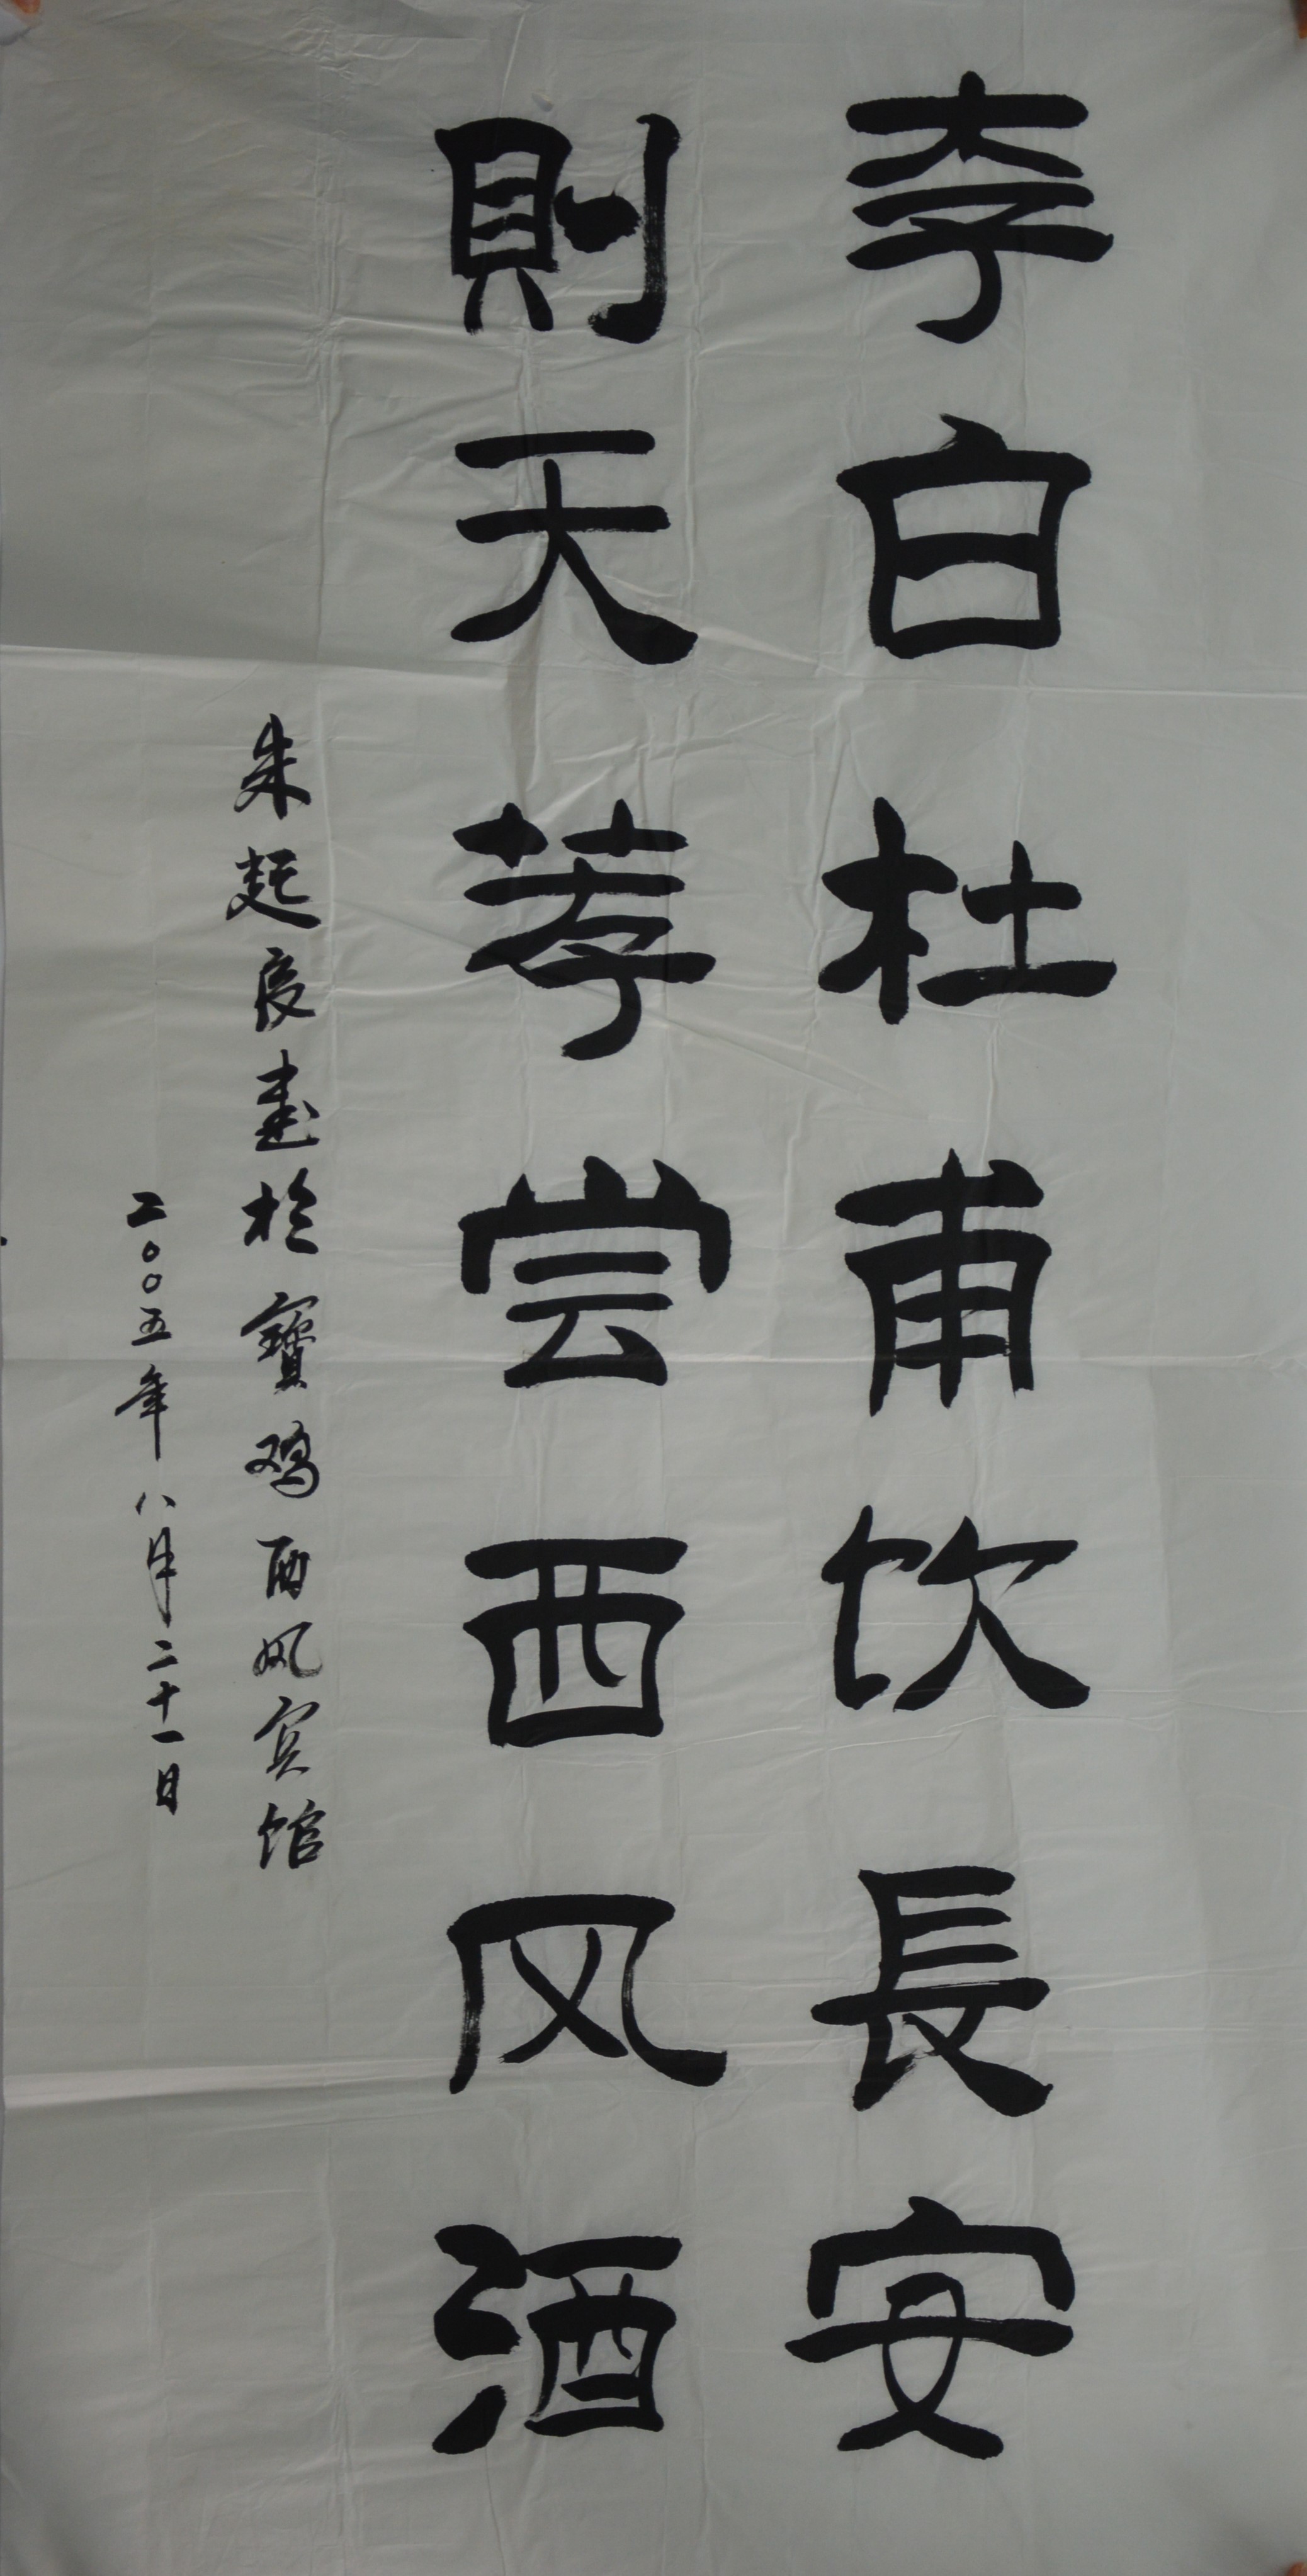 李白杜甫饮長安
則天荐尝西风酒
朱起良書於寶鸡西风宾馆
二〇〇五年八月二十一日